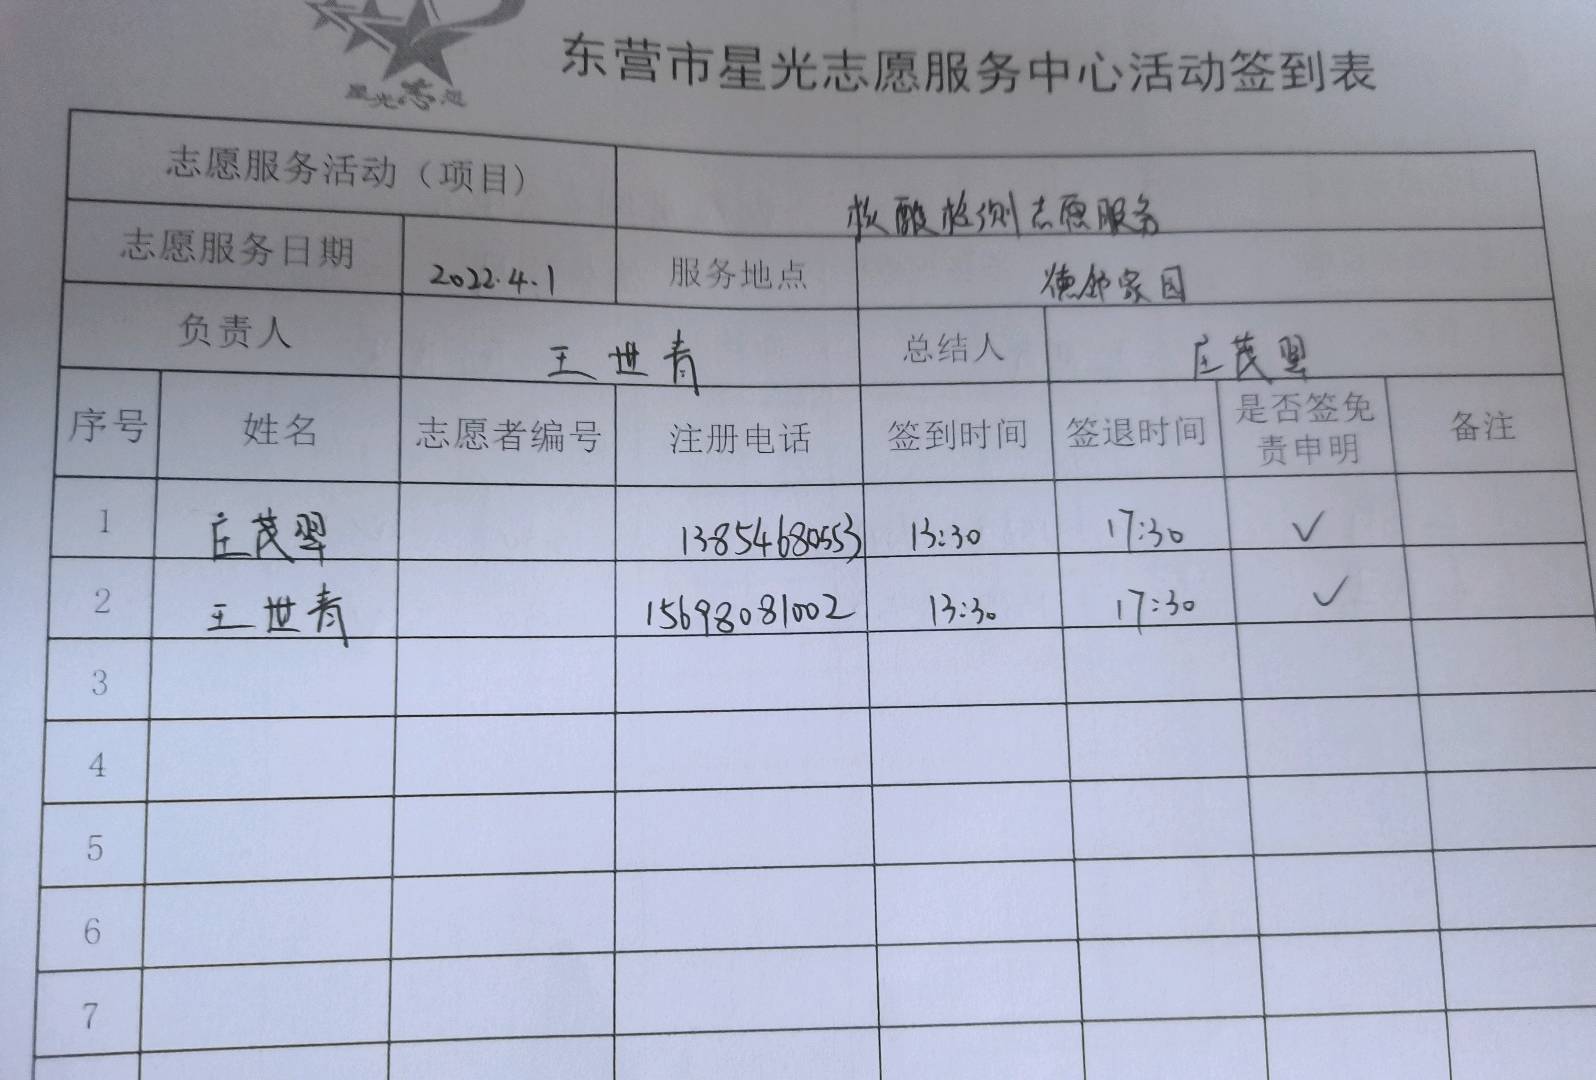 星光志愿
东营市星光志愿服务中心活动签到表
志愿服务活动（项目） 核酸检测志愿服务
志愿服务日期 2022.4.1 服务地点 德邻家园
负责人 王世青 总结人 庄茂翠
序号 姓名 志愿者编号 注册电话 签到时间 签退时间 是否签免
责申明 备注
1 庄茂翠 13854680553 13:30 17:30 ✓
2 王世青 15698081002 13:30 17:30 ✓
3
4
5
6
7